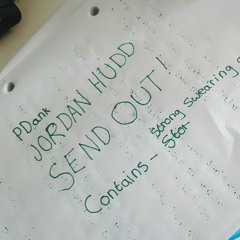 PDank
JORDAN HUDD
SEND OUT!
Contains - Strong Swearing
Star